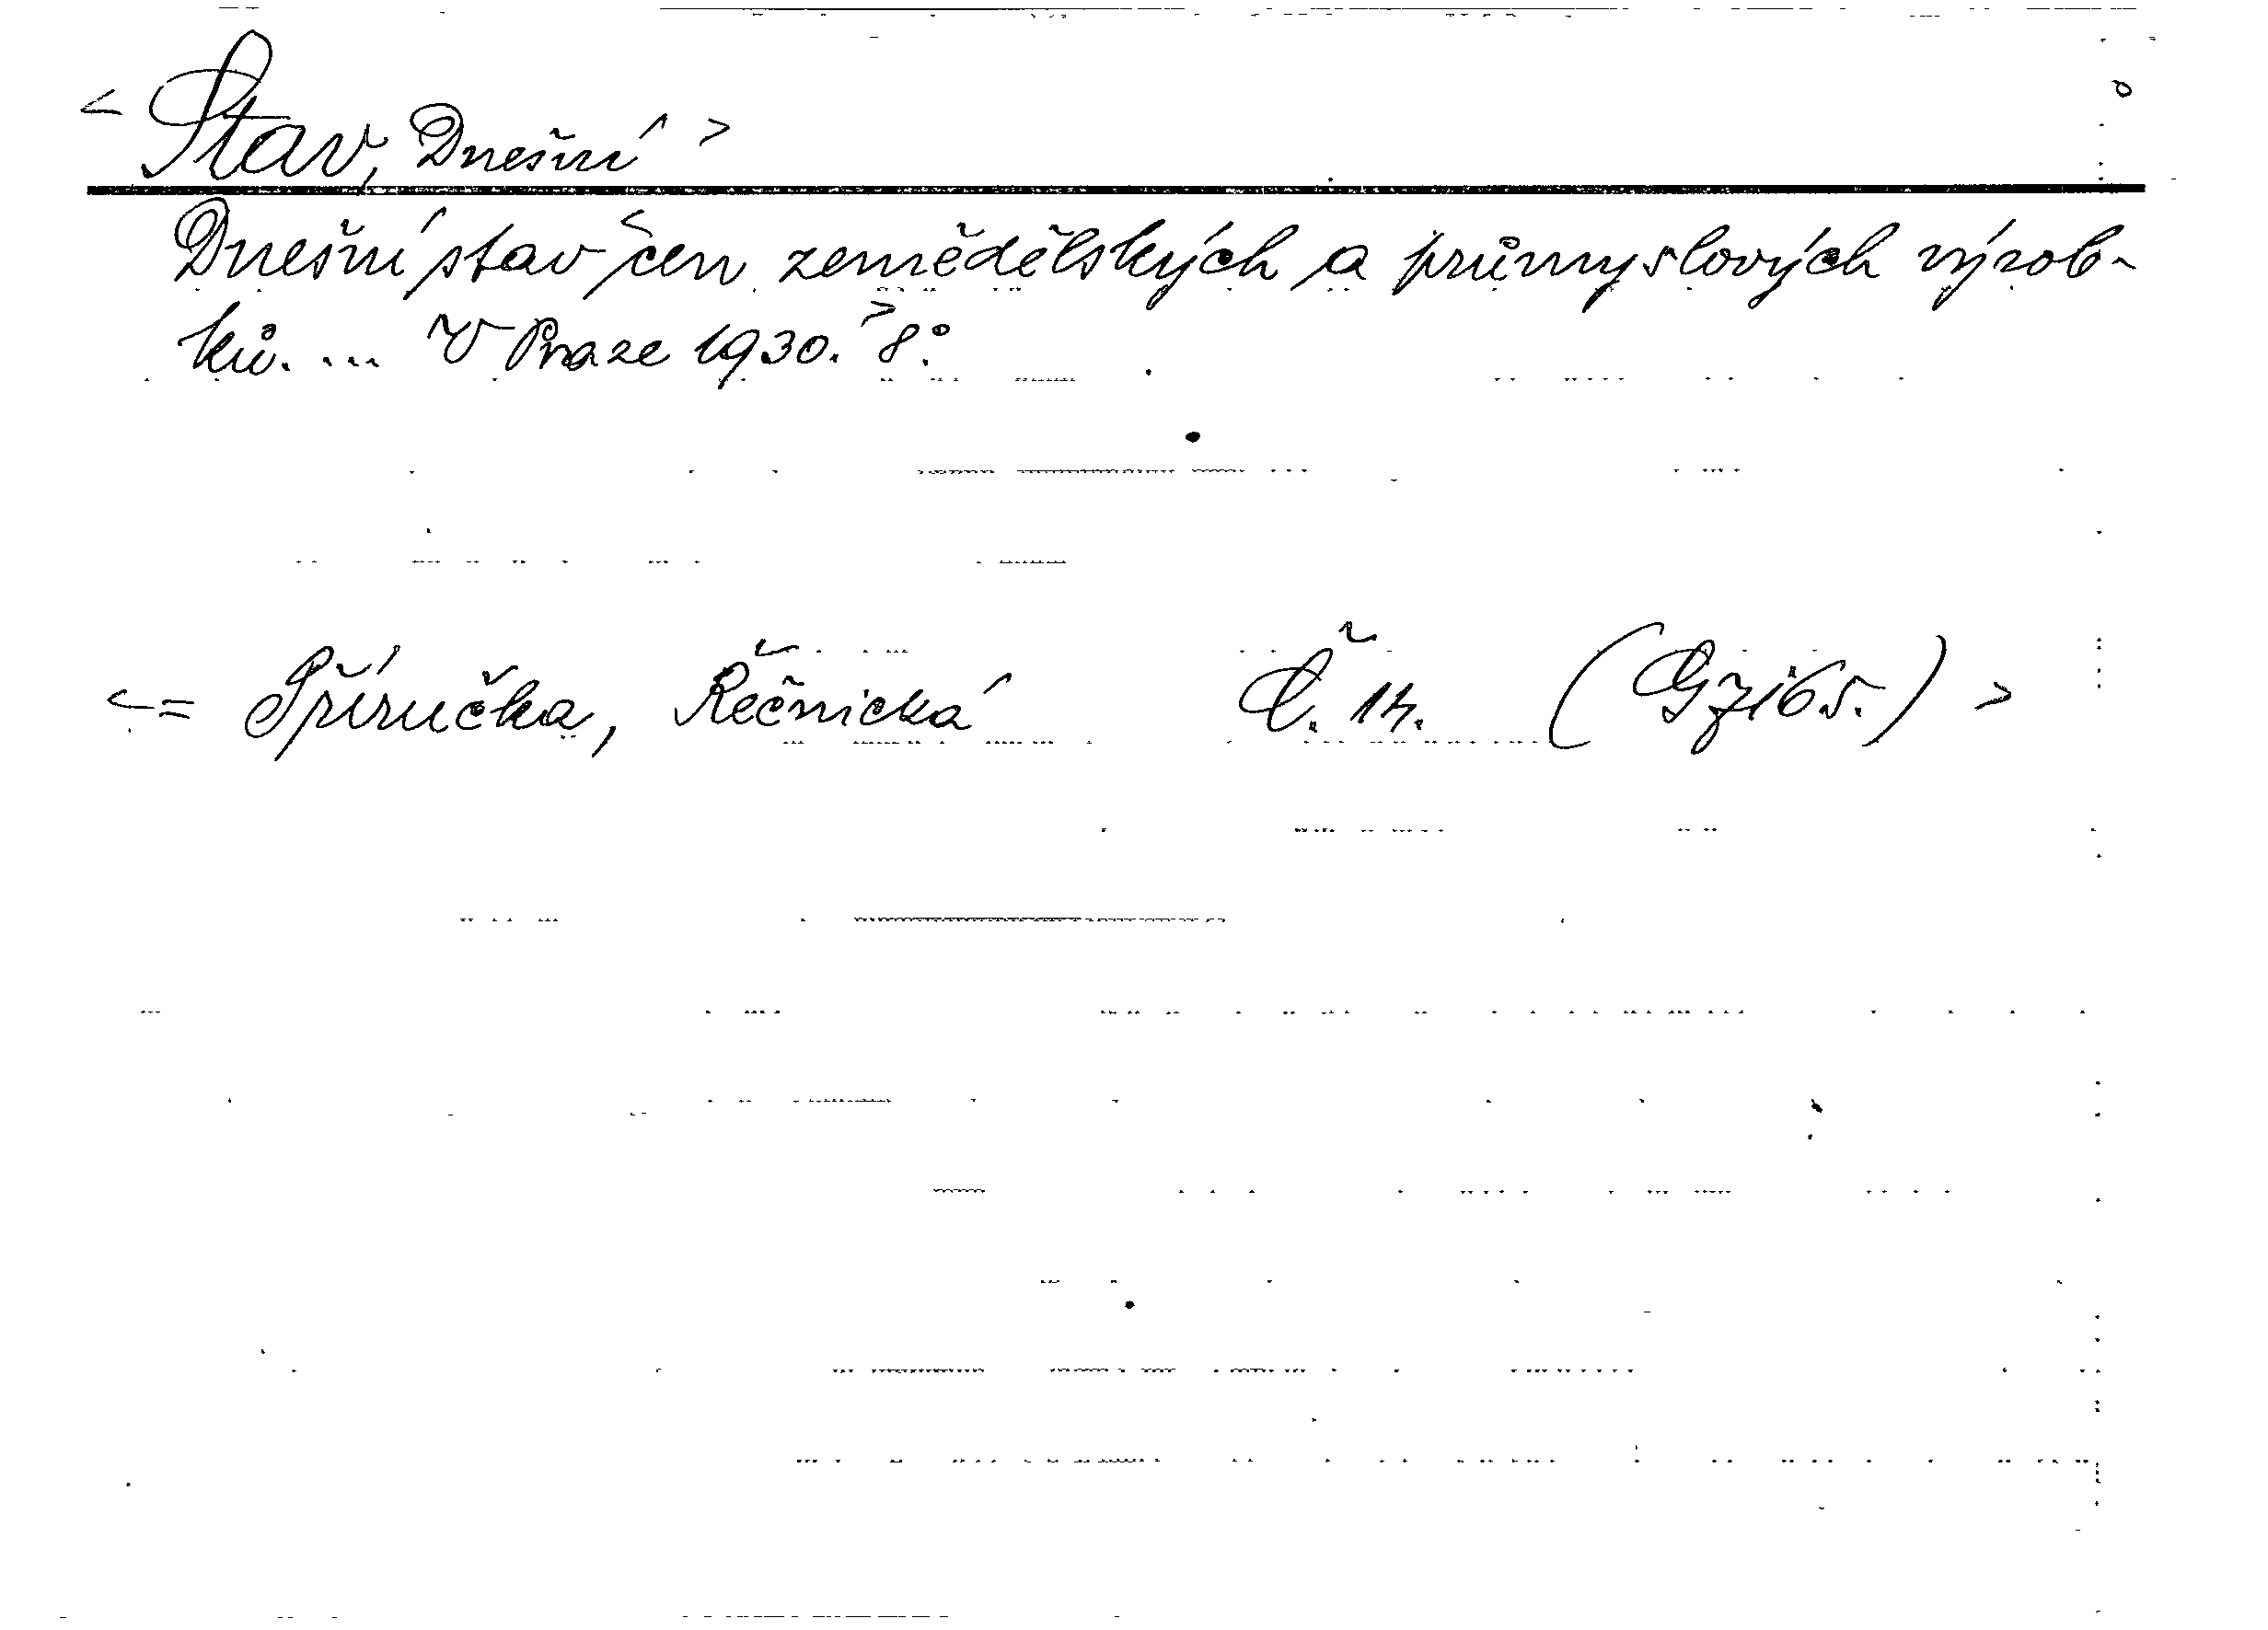 < Stav, Dnešní >
Dnešní stav cen zemědělských a průmyslových výrob-
ků. ... V Praze 1930. 8°.
<= Příručka, Řečnická Č. 14. (G 7165.) >